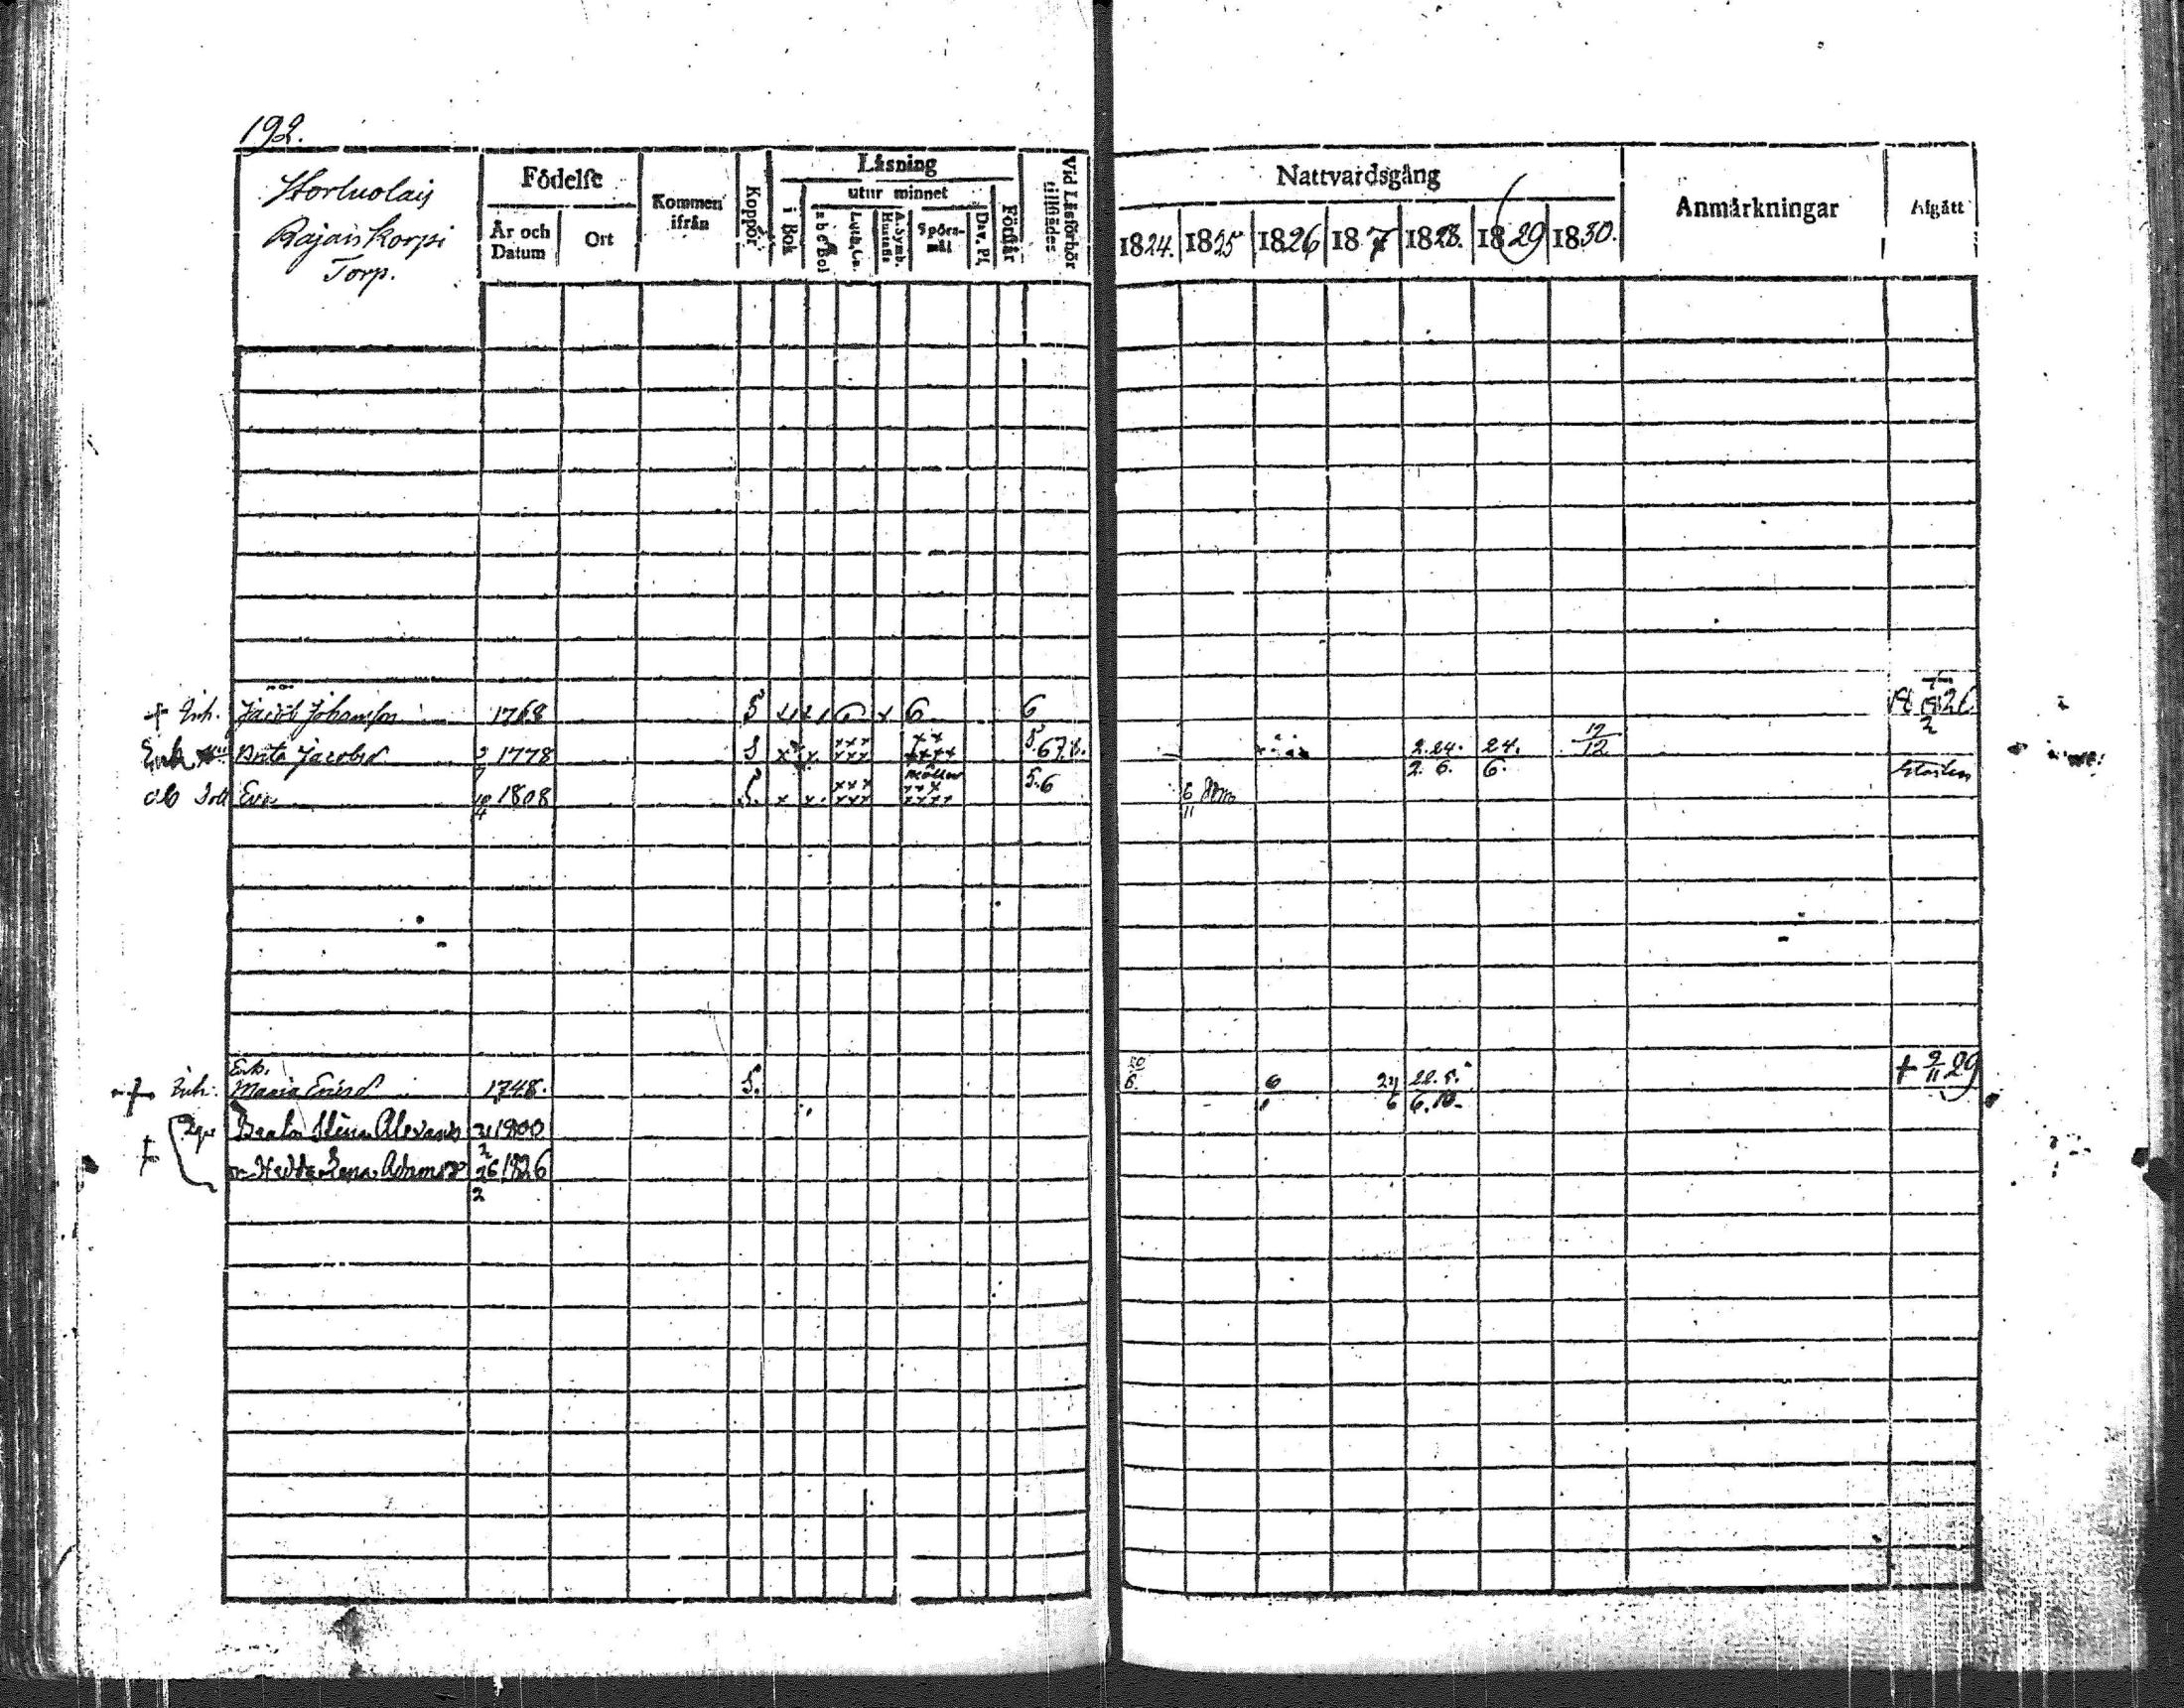 192.
Storluolais
Rajaiskorpi
Torp.
Födelse
År och Datum
Ort
Kommen ifrån
Koppor
Läsning
i Bok
utur minnet
a b c Bok
Luth. Ca.
A. Symb. Hustafla
Spörsmål
Dav. Ps.
Förstår
Vid Läsförhör tillstädes
Nattvardsgång
1824. 1825 1826 187 1828. 1829 1830.
Anmärkningar
Afgått
+ Inh. Jacob Johansson 1768 S 6 6 6 + 18 19/2 26
Enk Brita Jacobsd 2/7 1778 S x x. xxx xxx xx xxxx 5. 67.8. 2.24. 2. 6. 24. 6. 17/12
do Dott Eva 10/4 1808 S. x x. xxx xxx xxx xxxx 5.6 6/11
+ Inh: Enk. Maria Ericsd 1748. S. 20/6. 6 24/6 22. 5. 6. 10. + 9/11 29
Beata Stina Alexand 21/2 1800
+ Hedda Lena Adamsd 26/2 1826